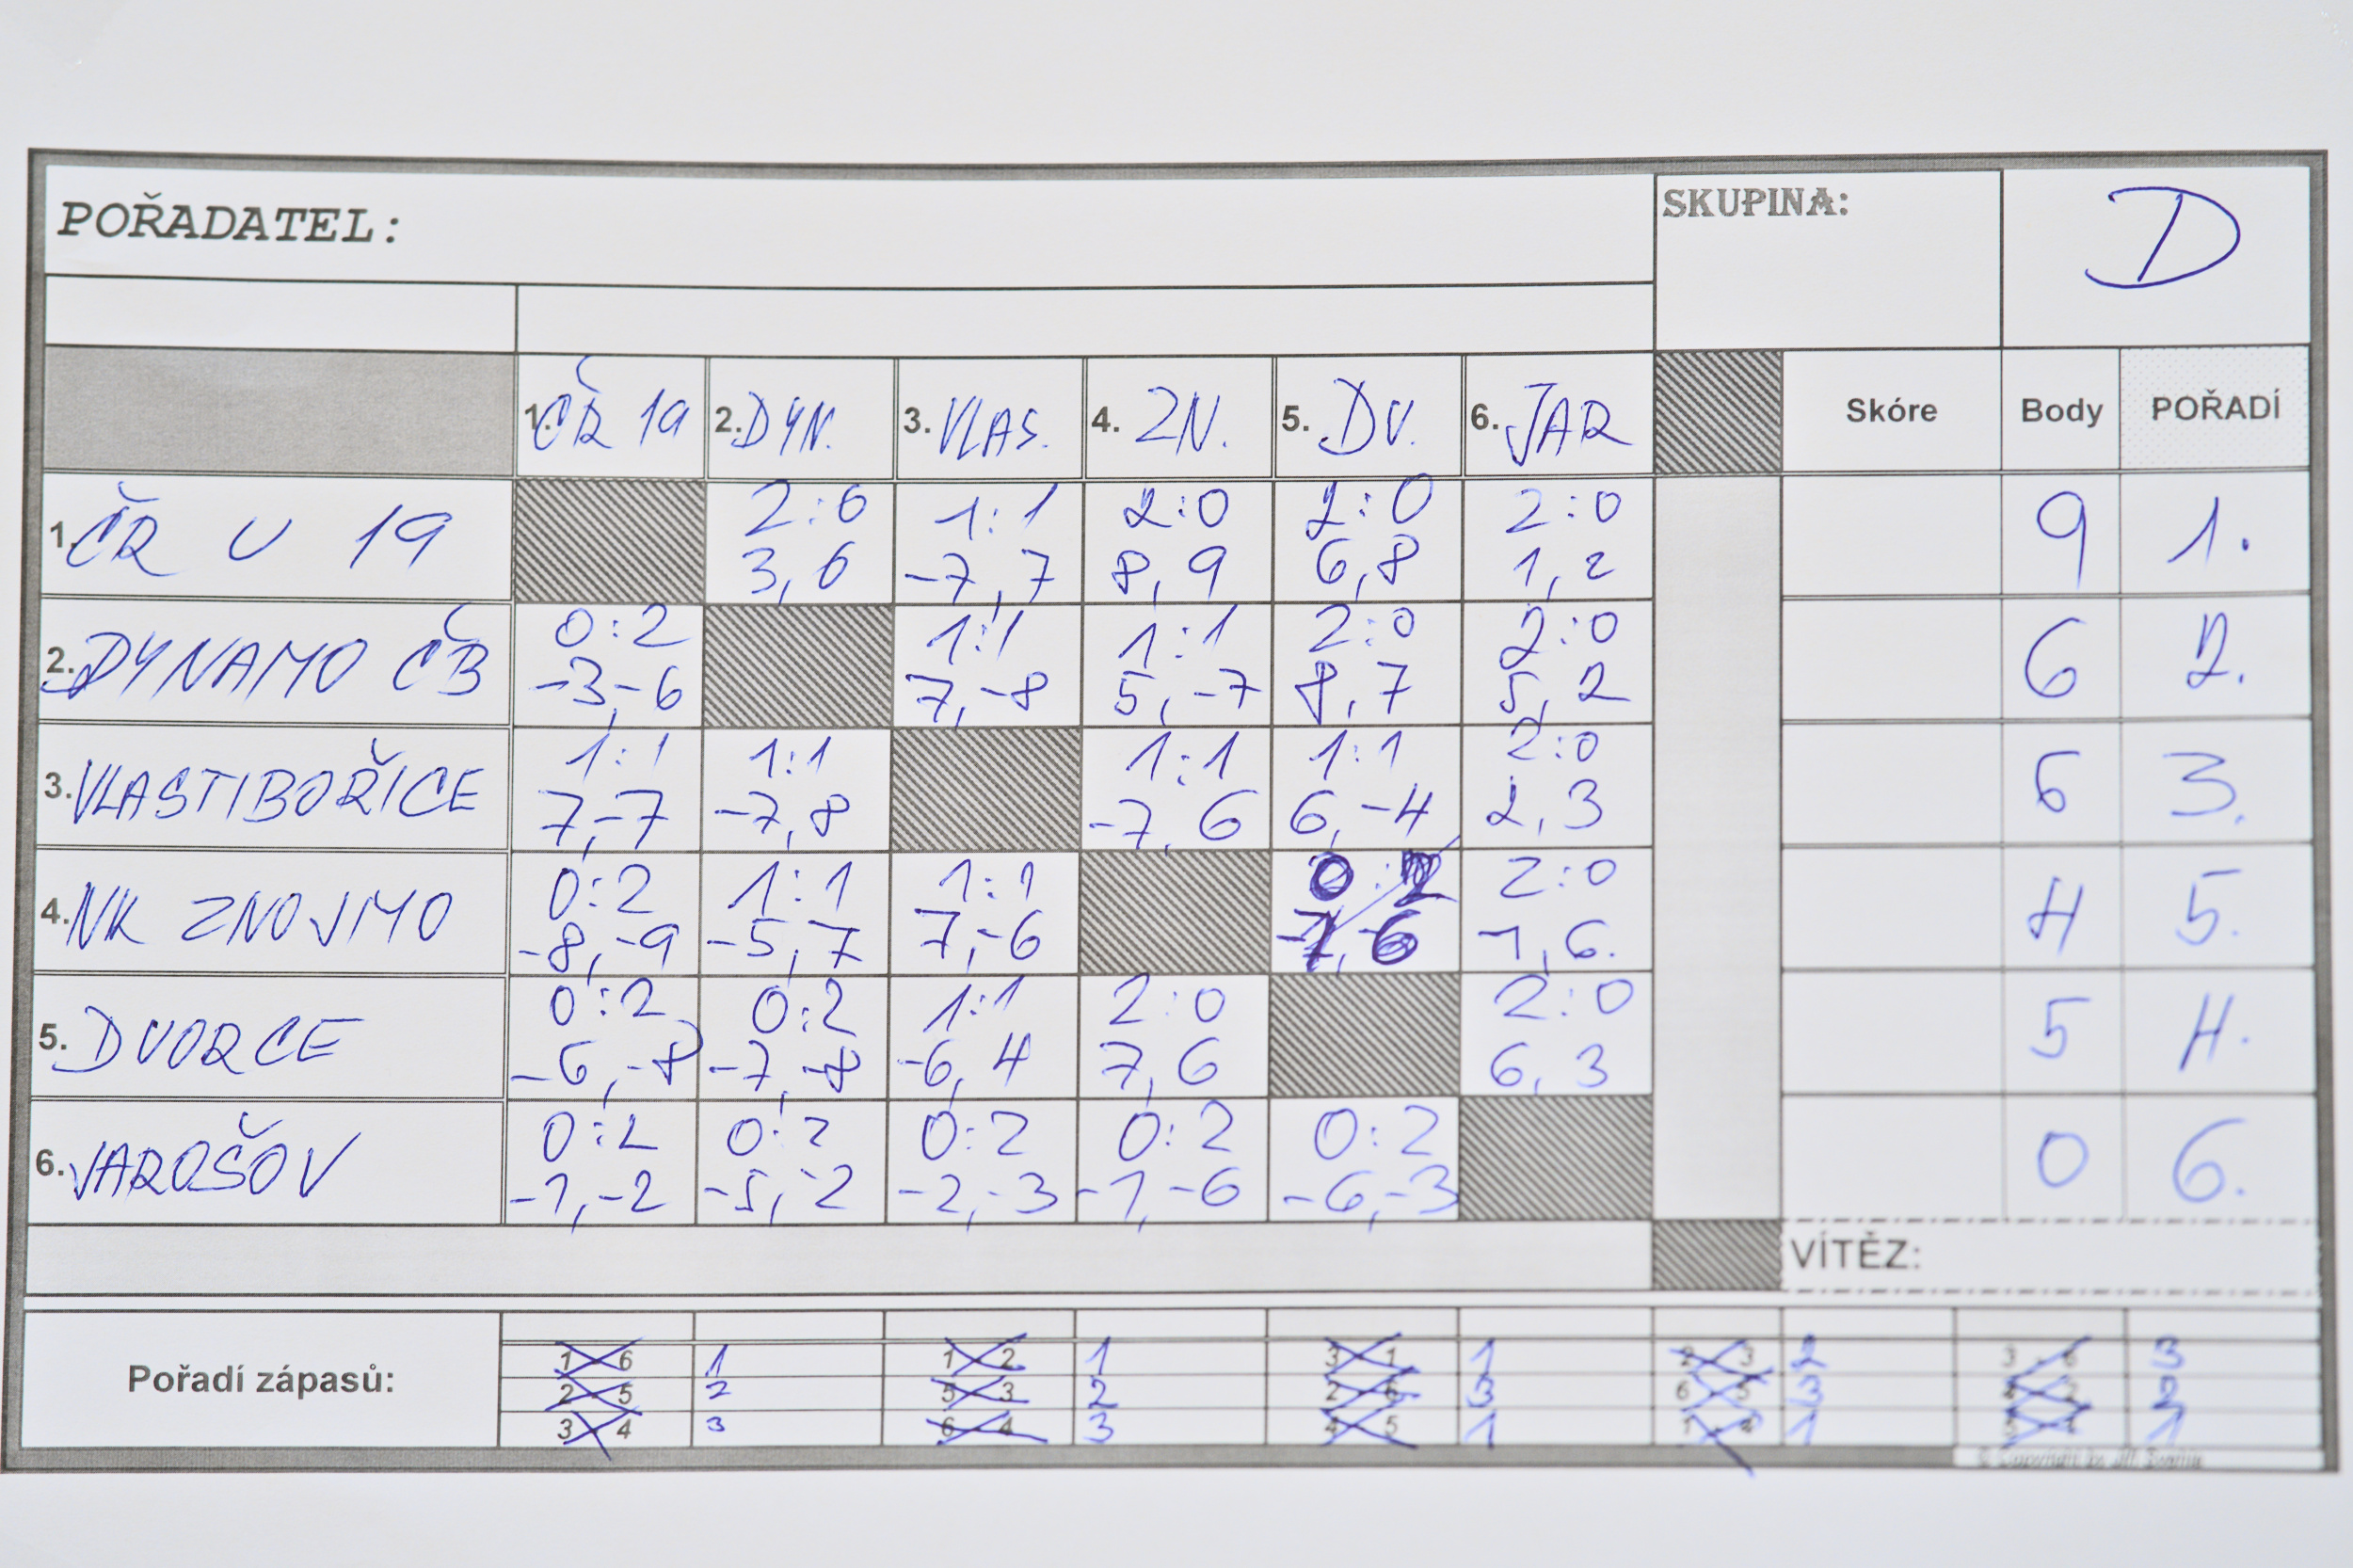 POŘADATEL:
SKUPINA: D
1. ČR 19 2. DYN. 3. VLAS. 4. ZN. 5. DV. 6. JAR Skóre Body POŘADÍ
2:0 1:1 2:0 2:0 2:0
1. ČR U 19 9 1.
3,6 -7,7 8,9 6,8 1,2
0:2 1:1 1:1 2:0 2:0
2. DYNAMO ČB 6 2.
-3,-6 7,-8 5,-7 8,7 5,2
1:1 1:1 1:1 1:1 2:0
3. VLASTIBOŘICE 6 3.
7,-7 -7,8 -7,6 6,-4 2,3
0:2 1:1 1:1 0:2 2:0
4. NK ZNOJMO 4 5.
-8,-9 -5,7 7,-6 -7,-6 1,6.
0:2 0:2 1:1 2:0 2:0
5. DVORCE 5 4.
-6,-8 -7,-8 -6,4 7,6 6,3
0:2 0:2 0:2 0:2 0:2
6. JAROŠOV 0 6.
-1,-2 -5,-2 -2,-3 -1,-6 -6,-3
VÍTĚZ:
Pořadí zápasů:
1 - 6 1 1 - 2 1 3 - 1 1 2 - 3 2 3 - 6 3
2 - 5 2 5 - 3 2 2 - 6 3 6 - 5 3 4 - 2 2
3 - 4 3 6 - 4 3 4 - 5 1 1 - 4 1 1